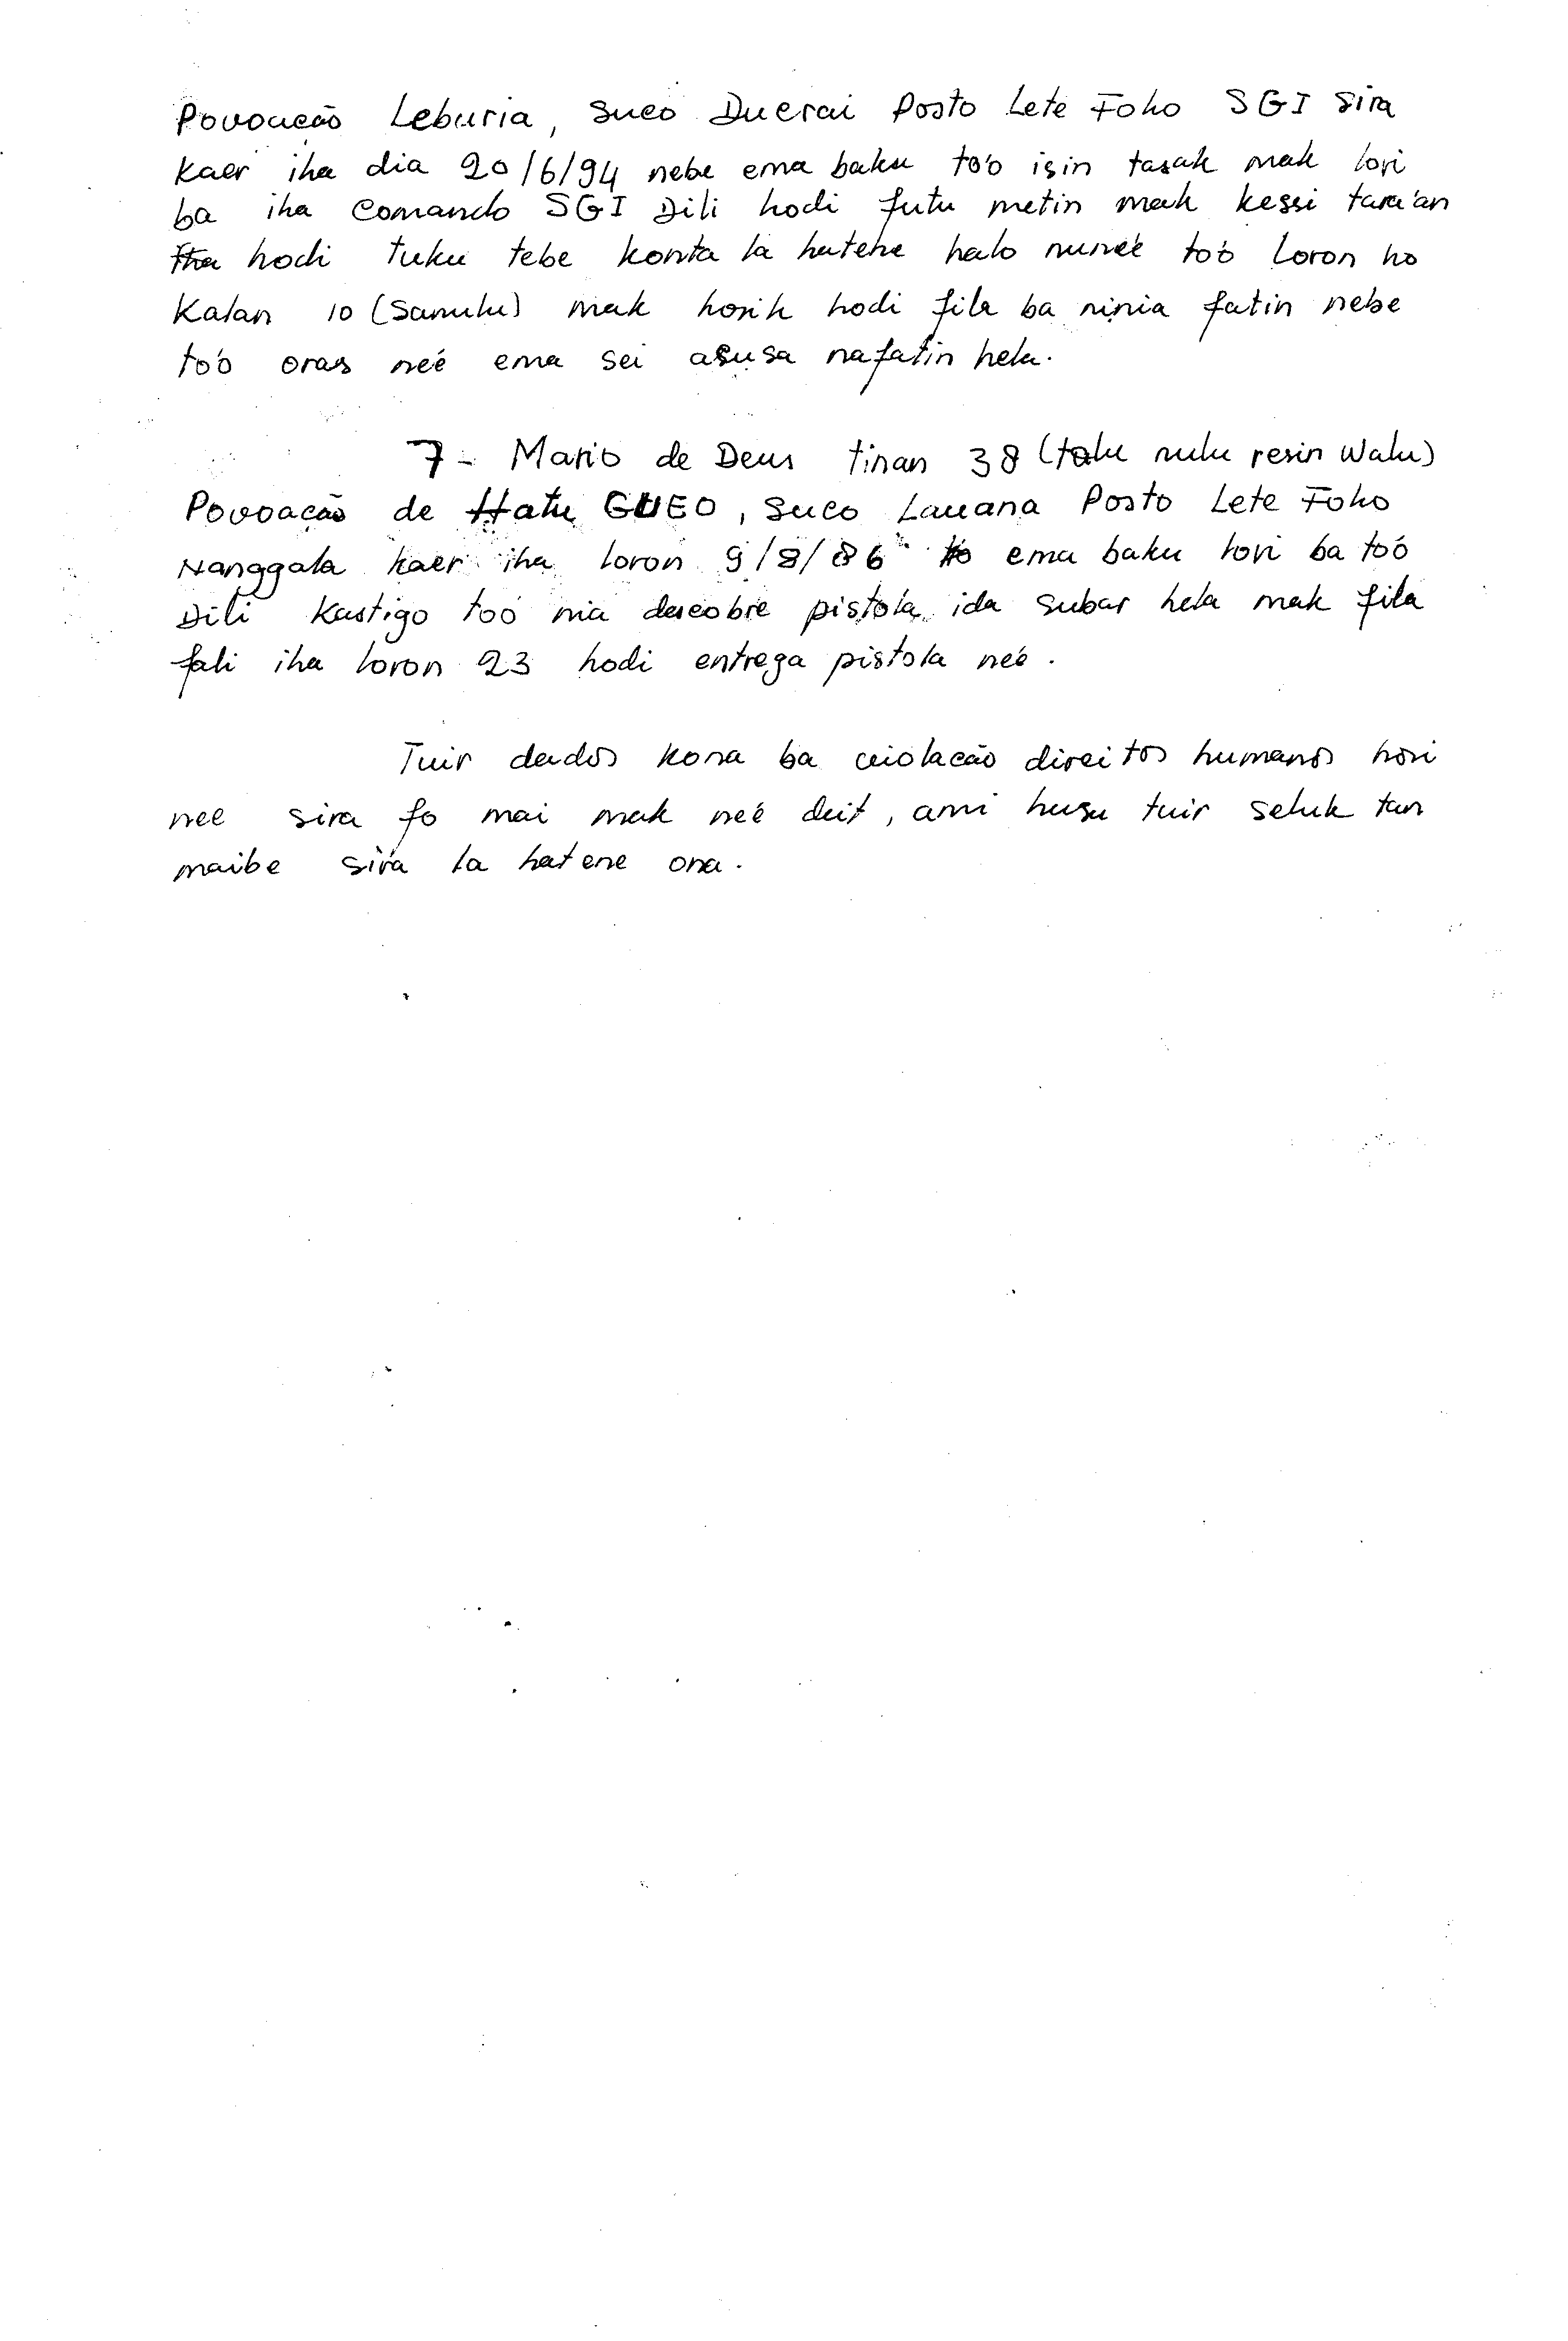 Povoação Leburia, Suco Ducrai Posto Lete Foho SGI sira
Kaer iha dia 20/6/94 nebe ema baku to'o isin tasak mak lori
ba iha Comando SGI Dili hodi futu metin mak kessi tara'an
hodi tuku tebe konta la hatene halo nune'e to'o Loron ho
Kalan 10 (Sanulu) mak hosik hodi fila ba ninia fatin nebe
to'o oras ne'e ema sei asusa nafatin hela.
7- Mario de Deus tinan 38 (tolu nulu resin Walu)
Povoação de Hatu GUEO, Suco Lauana Posto Lete Foho
Nanggala kaer iha loron 9/8/86 ema baku lori ba to'o
Dili Kastigo to'o nia descobre pistola ida subar hela mak fila
fali iha loron 23 hodi entrega pistola ne'e.
Tuir dados kona ba violação direitos humanos hosi
nee sira fo mai mak ne'e deit, ami husu tuir seluk tan
maibe sira la hatene ona.